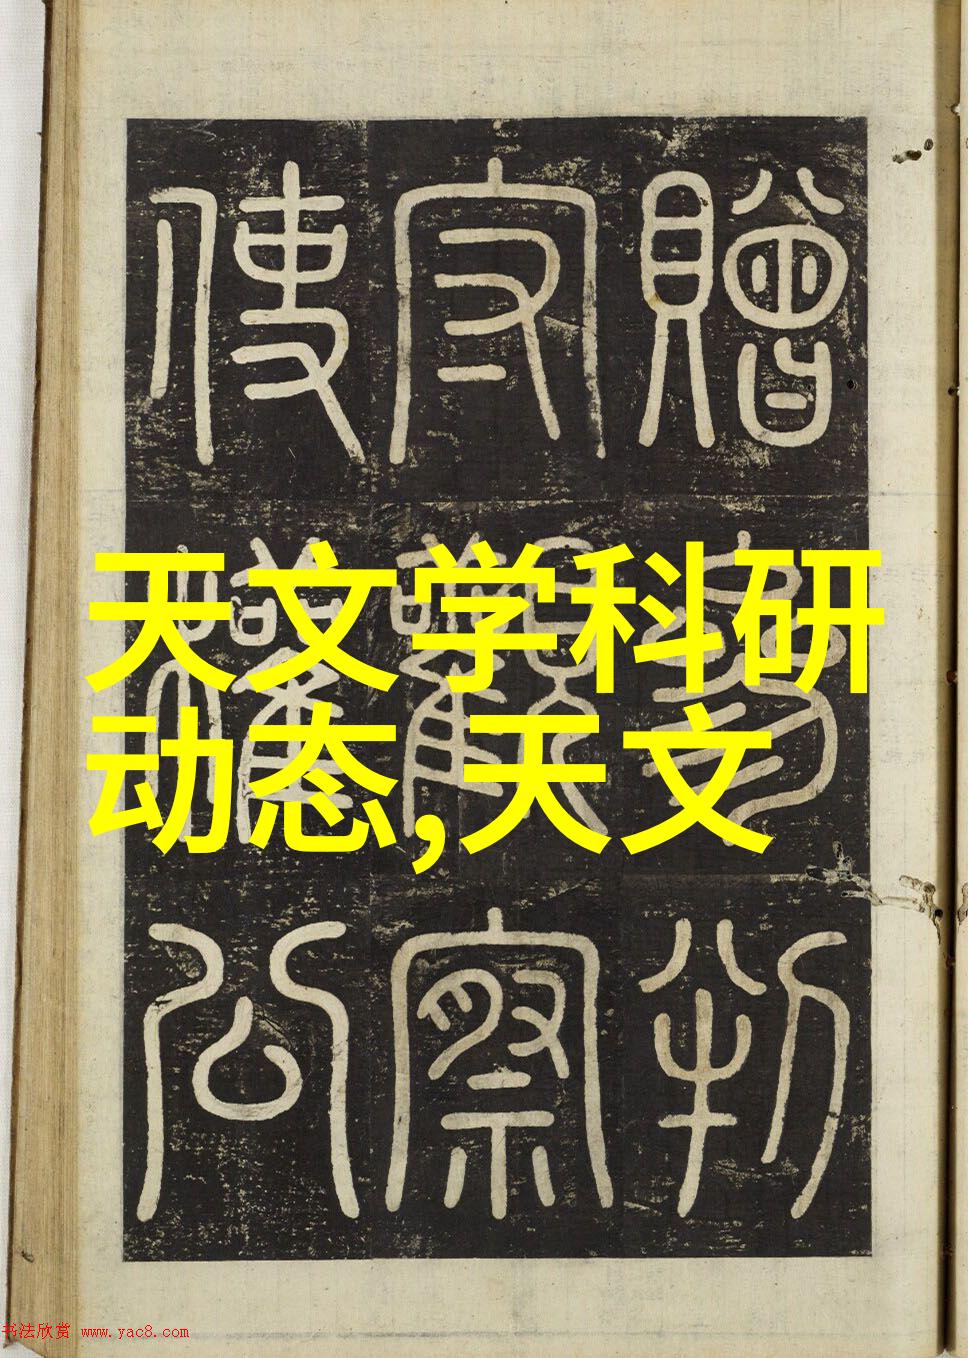 贈判
觀察
使權公
天文学科研
动态,天文
书法欣赏 www.yac8.com